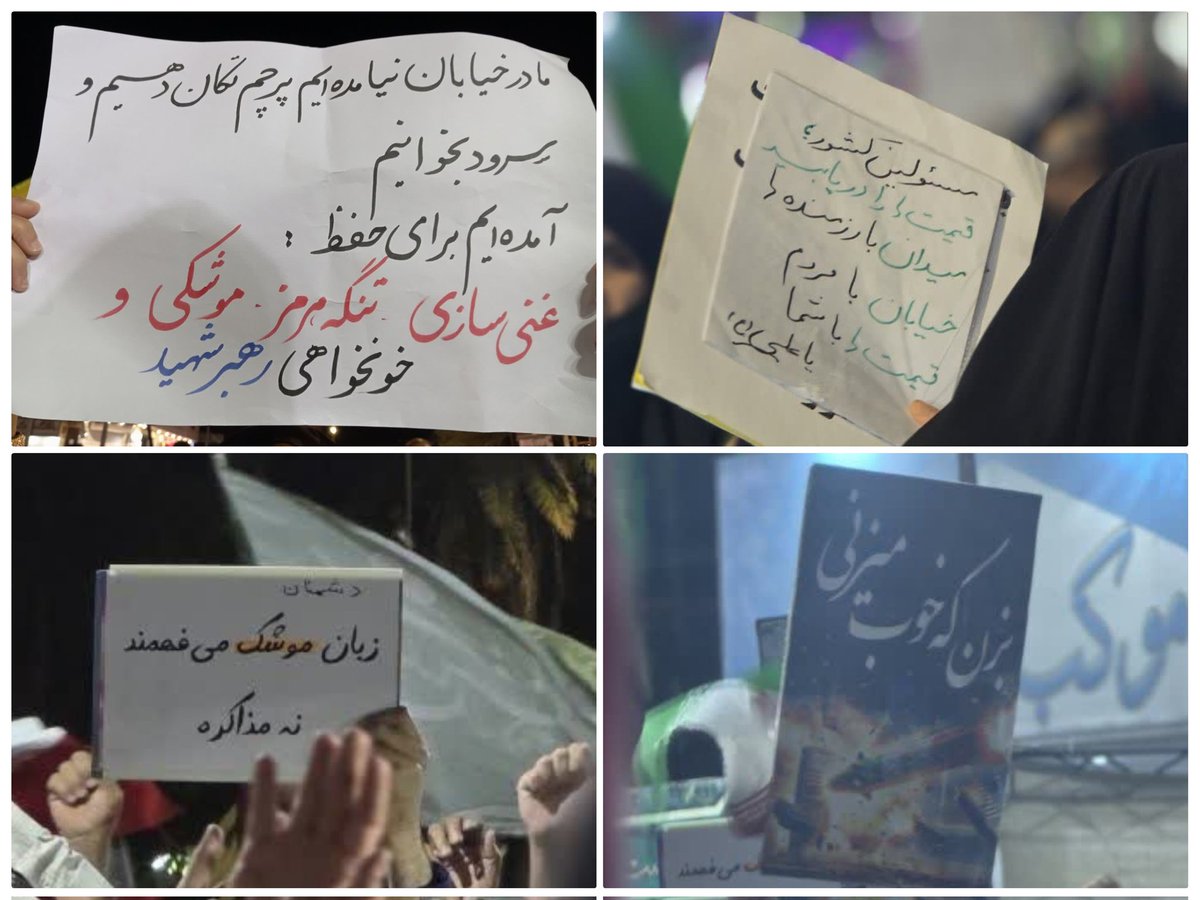 ما در خیابان نیامده ایم پرچم تکان دهیم و
سرود بخوانیم
آمده ایم برای حفظ :
غنی سازی . تنگه هرمز . موشکی و
خونخواهی رهبر شهید
مسئولین کشور؛
قیمت ها را دریابید
میدان با رزمنده ها
خیابان با مردم
قیمت ها با شما
یا علی
دشمنان
زبان موشک می فهمند
نه مذاکره
بزن که خوب میزنی
موکب
می فهمند